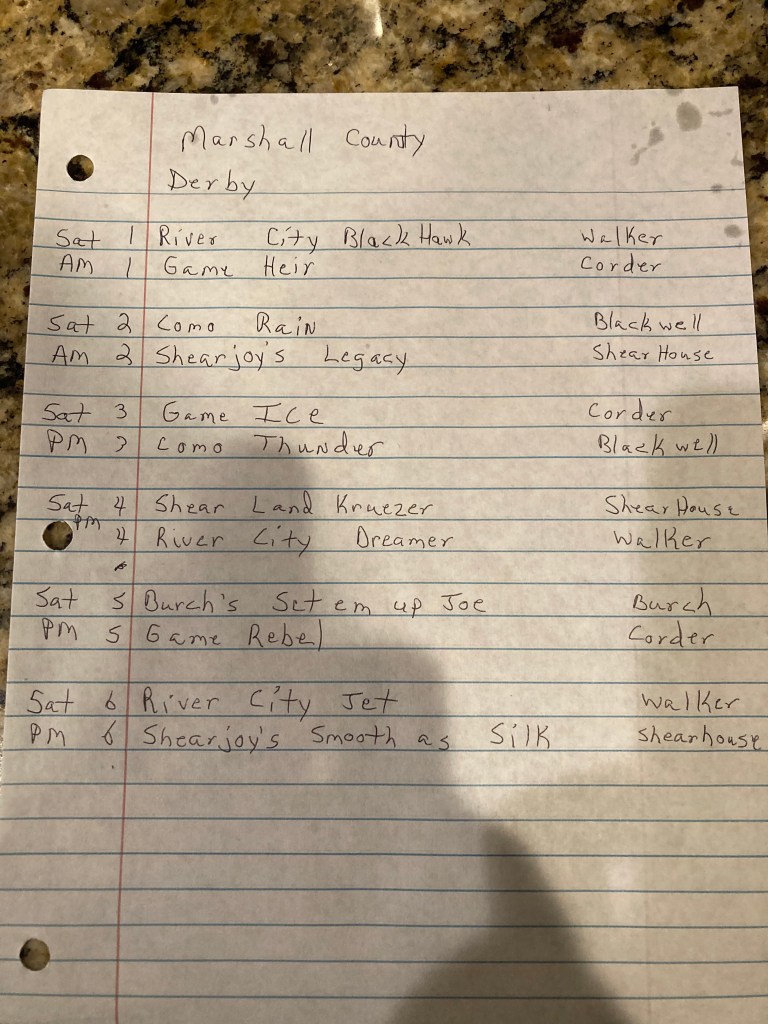 Marshall County
Derby
Sat 1 River City Black Hawk Walker
AM 1 Game Heir Corder
Sat 2 Como Rain Blackwell
AM 2 Shearjoy's Legacy Shear House
Sat 3 Game Ice Corder
PM 3 Como Thunder Blackwell
Sat 4 Shear Land Kruezer Shear House
PM 4 River City Dreamer Walker
Sat 5 Burch's Set em up Joe Burch
PM 5 Game Rebel Corder
Sat 6 River City Jet Walker
PM 6 Shearjoy's Smooth as Silk Shearhouse